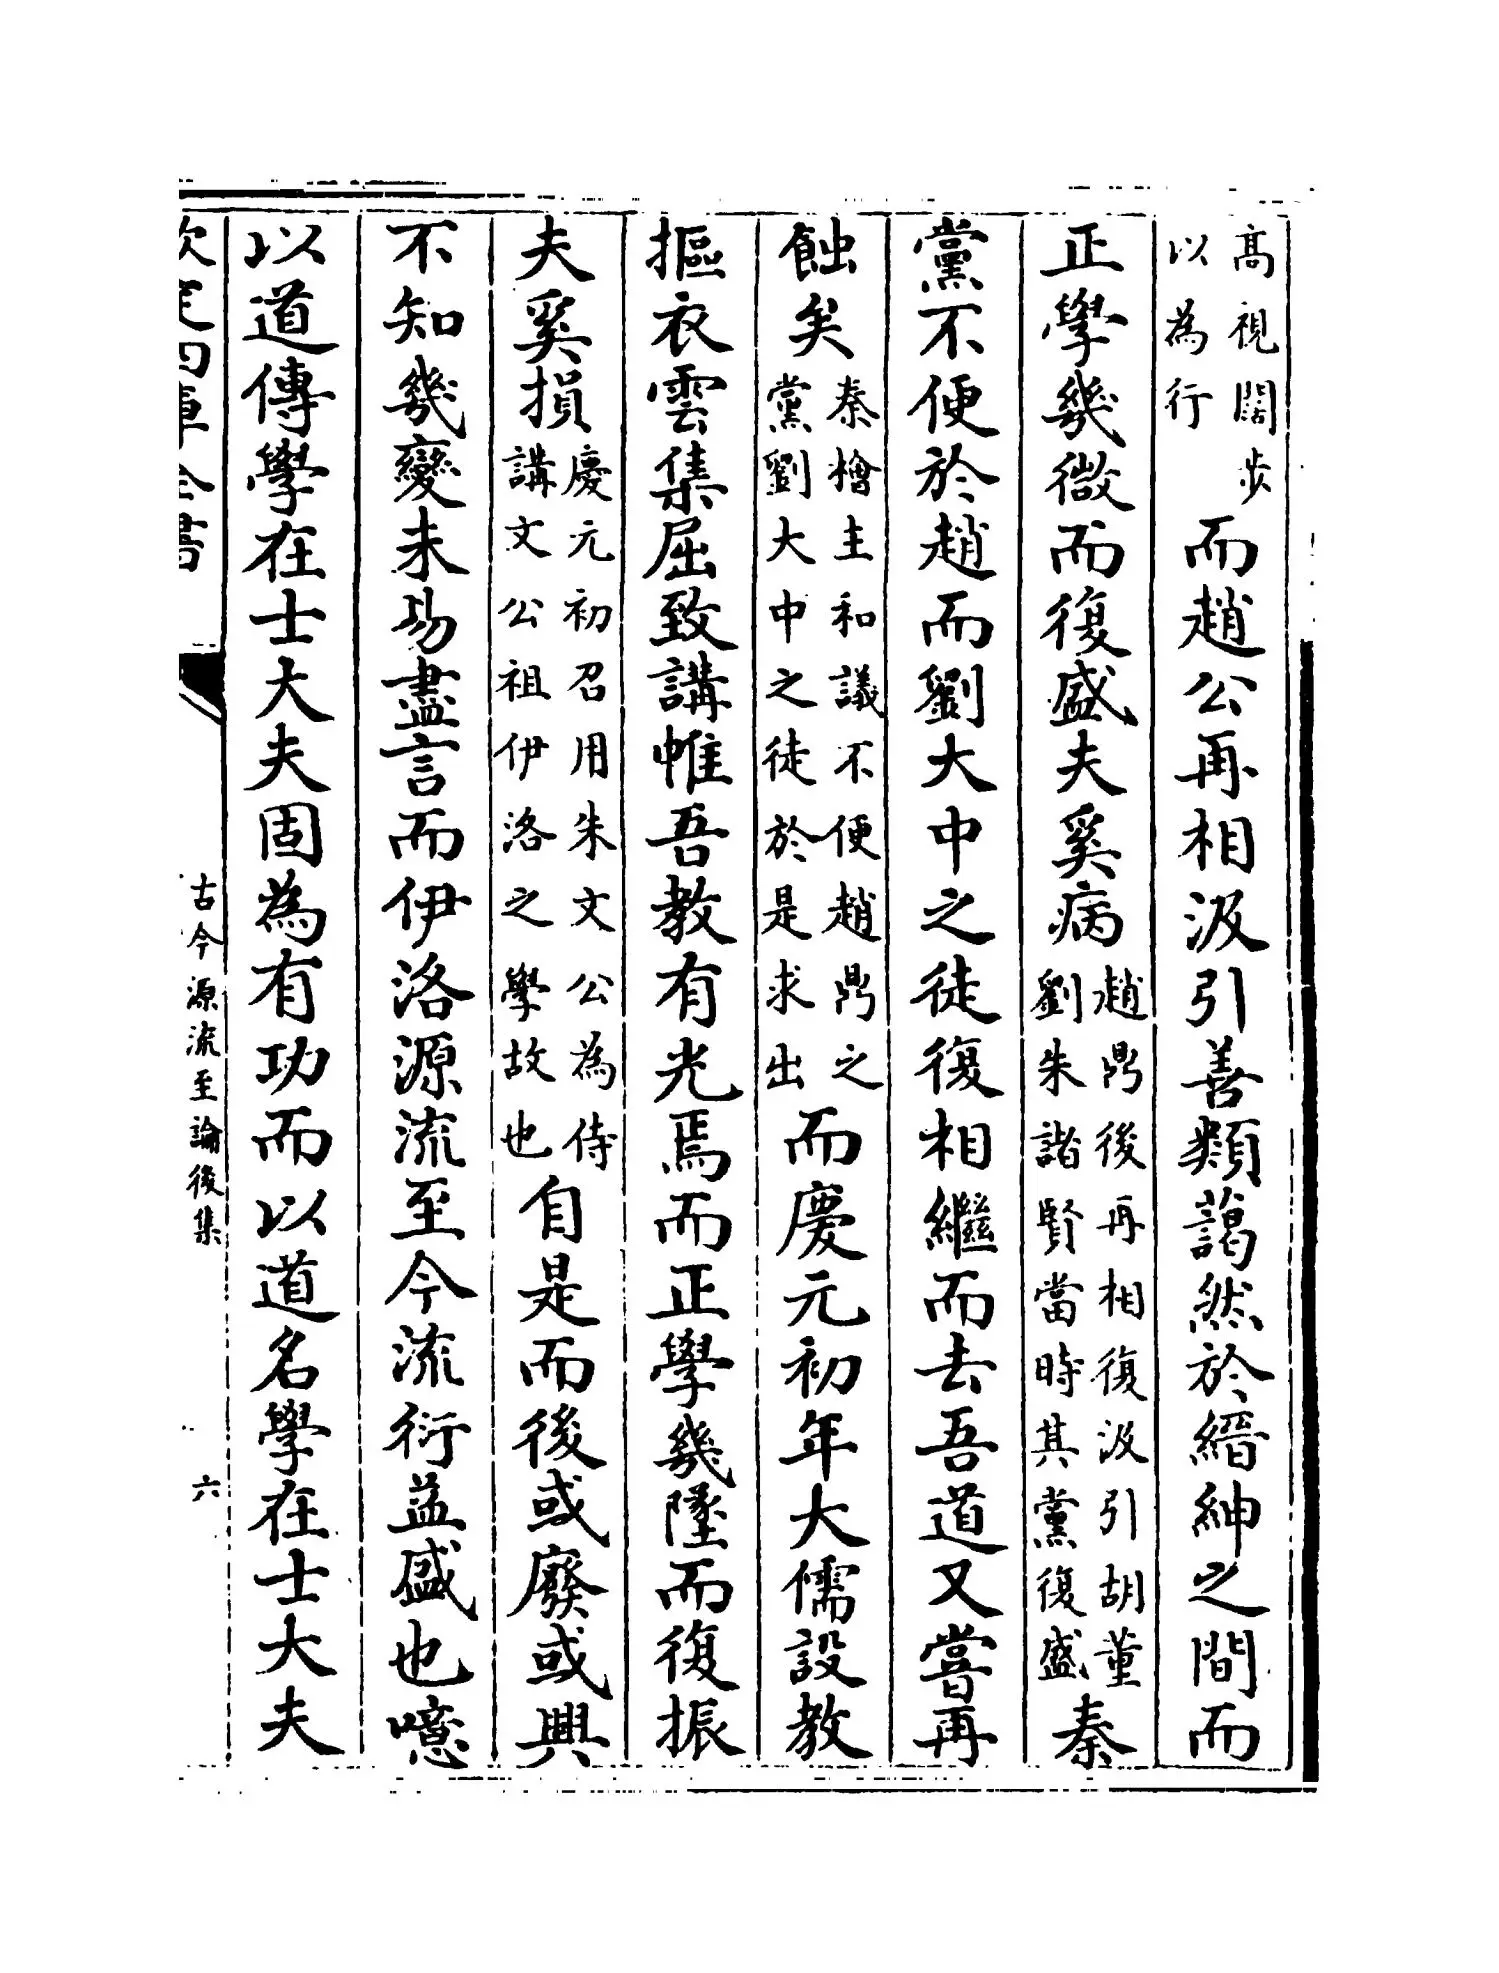 高視闊步以為行而趙公再相汲引善類藹然於縉紳之間而
正學幾微而復盛夫奚病趙鼎後再相復汲引胡董劉朱諸賢當時其黨復盛秦
黨不便於趙而劉大中之徒復相繼而去吾道又嘗再
蝕矣秦檜主和議不便趙鼎之黨劉大中之徒於是求出而慶元初年大儒設教
摳衣雲集屈致講帷吾教有光焉而正學幾墜而復振
夫奚損慶元初召用朱文公為侍講文公祖伊洛之學故也自是而後或廢或興
不知幾變未易盡言而伊洛源流至今流衍益盛也噫
以道傳學在士大夫固為有功而以道名學在士大夫
欽定四庫全書
古今源流至論後集
六